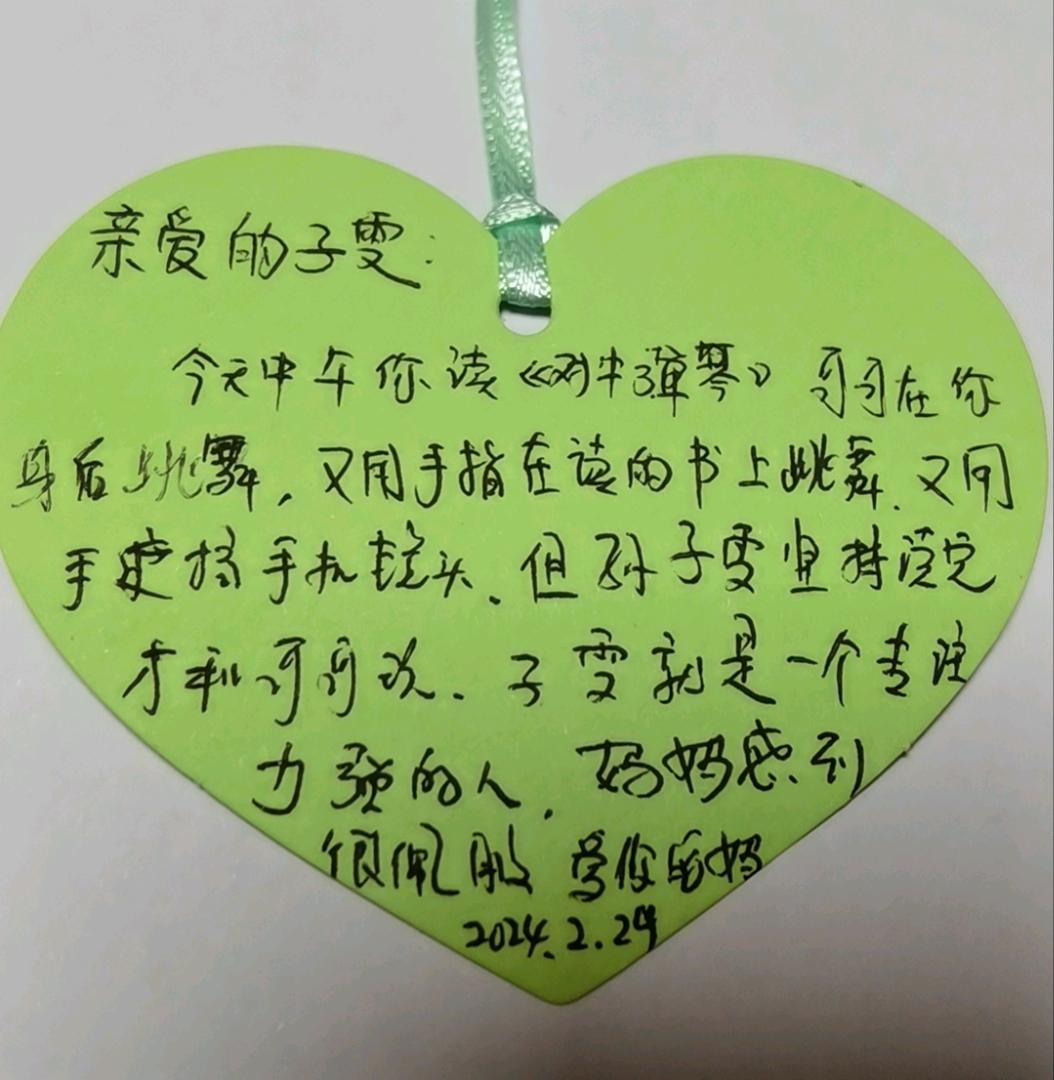 亲爱的子雯：
今天中午你读《对牛弹琴》哥哥在你
身后跳舞，又用手指在读的书上跳舞、又用
手去挡手机镜头、但孙子雯坚持读完
才和哥哥说、子雯就是一个专注
力强的人，妈妈感到
很佩服 爱你的妈
2024.2.24